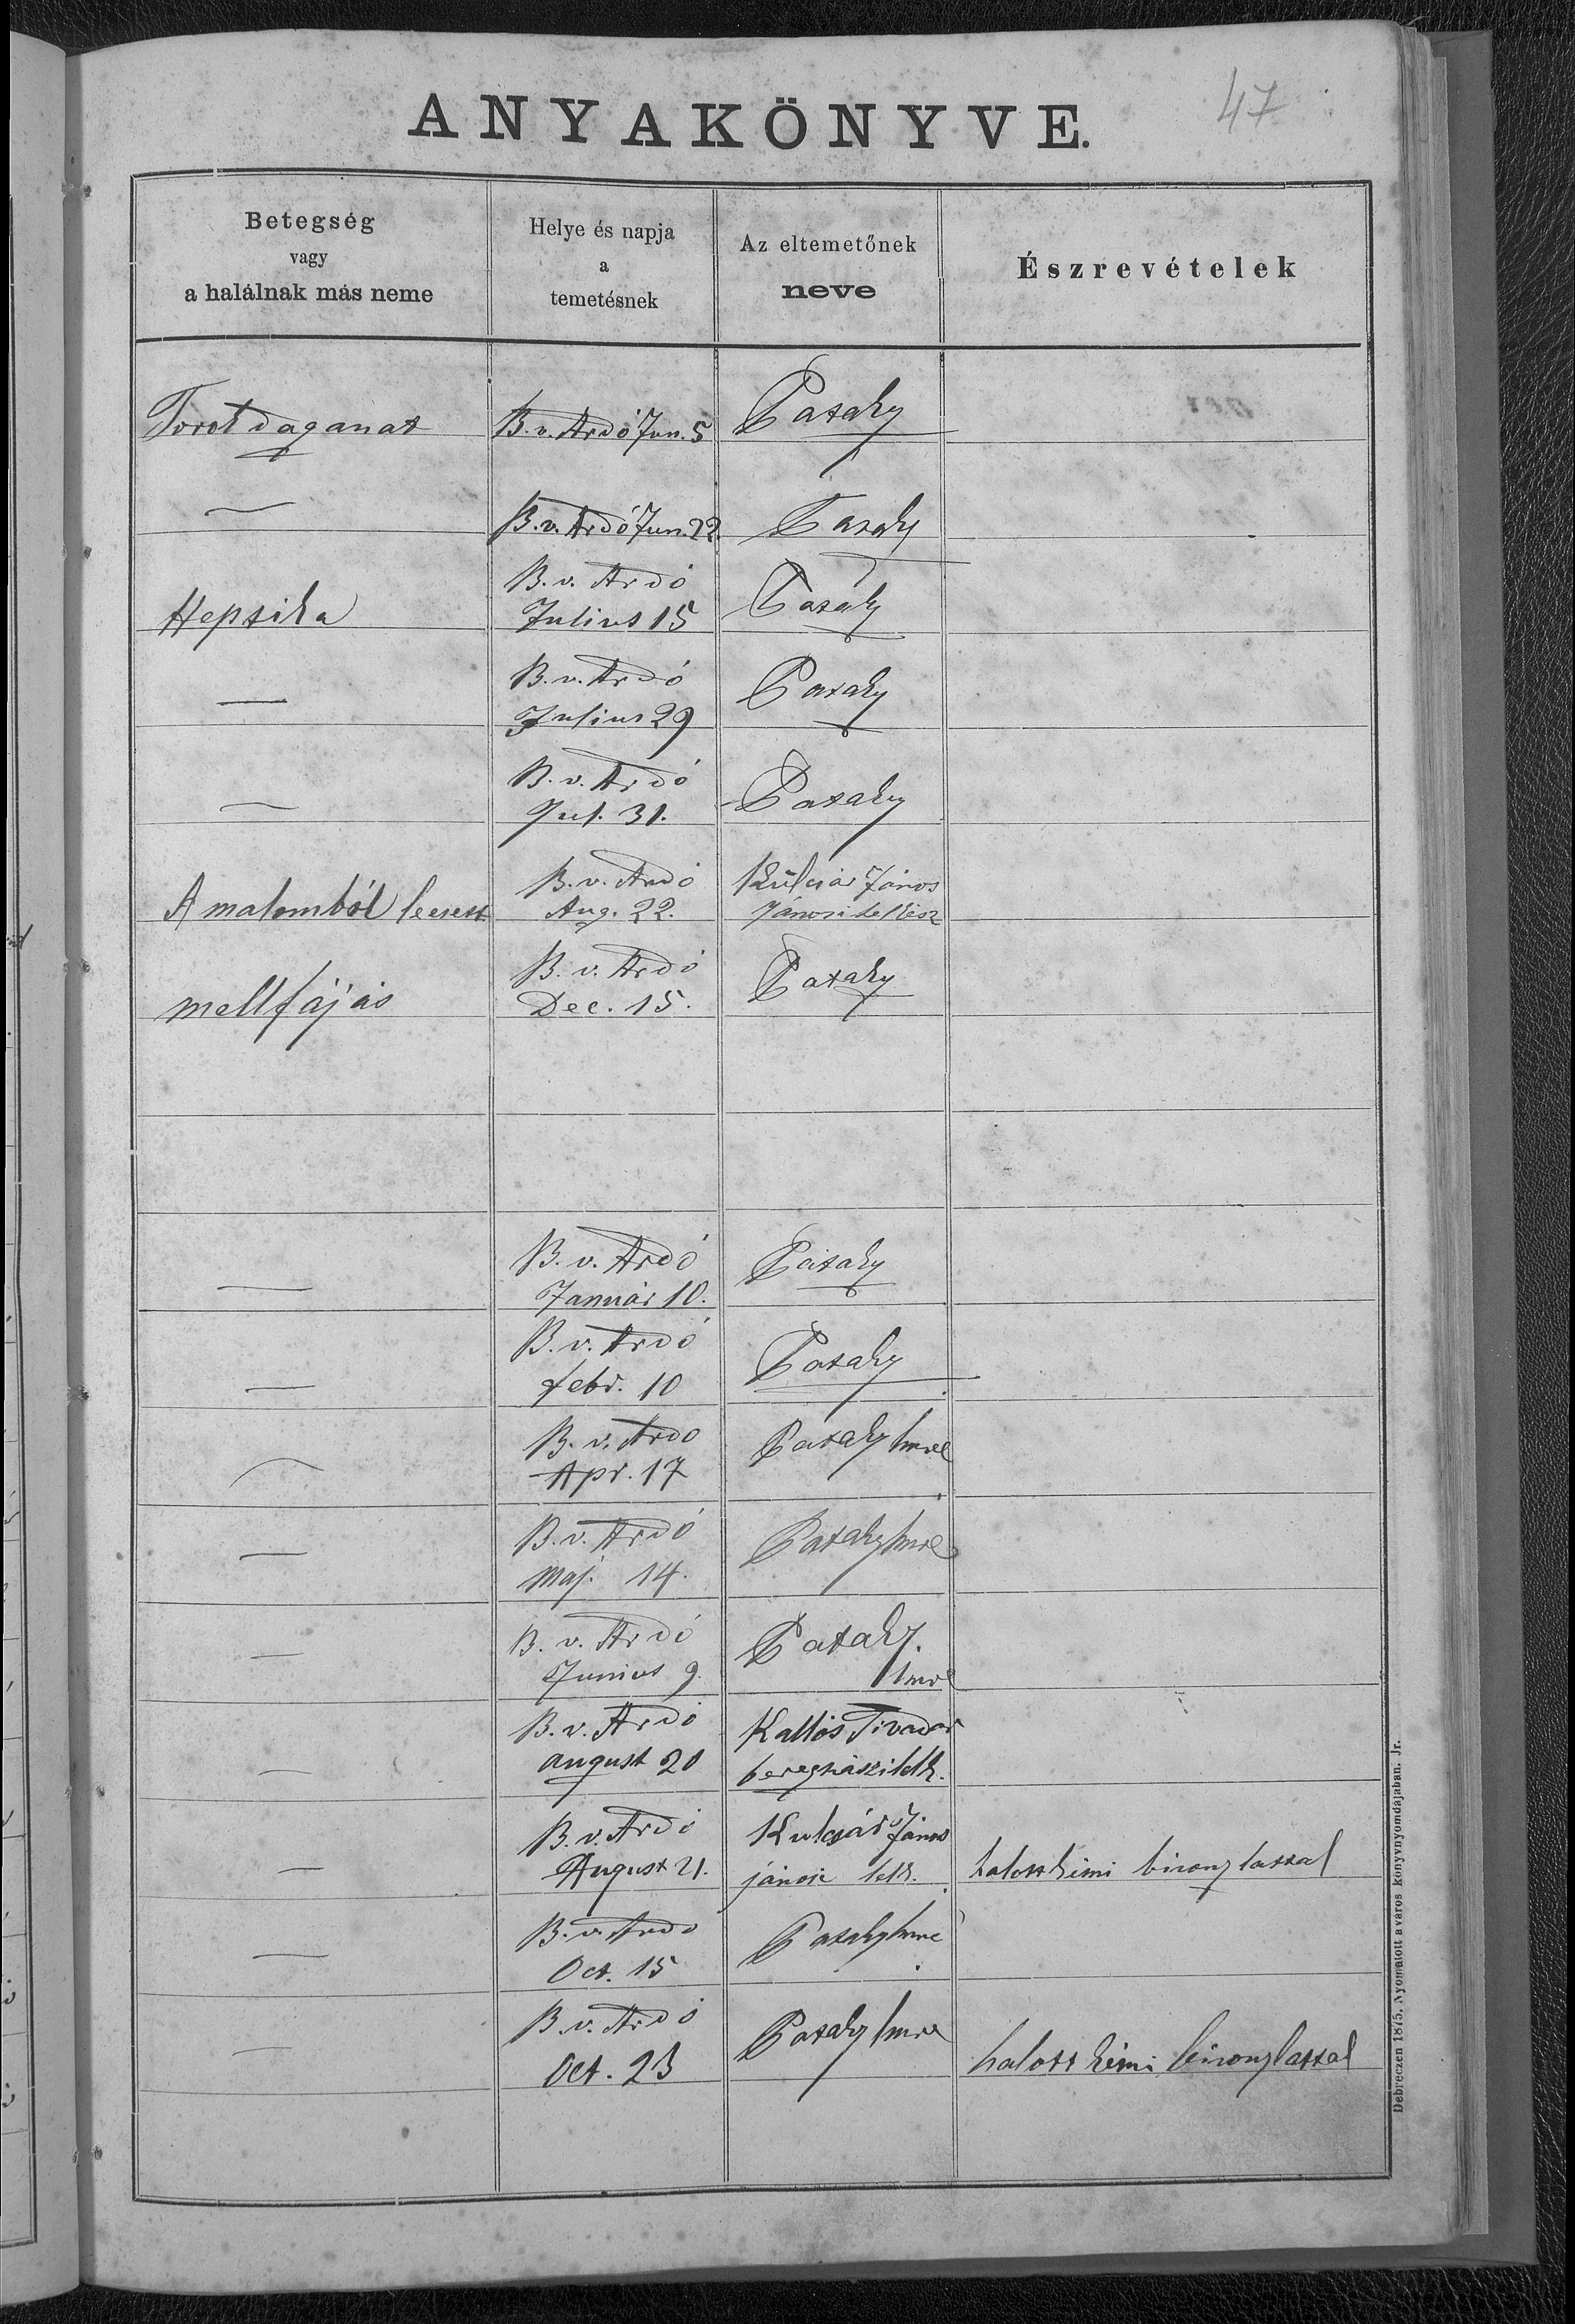 47
ANYAKÖNYVE.
Betegség
vagy
a halálnak más neme
Helye és napja
a
temetésnek
Az eltemetőnek
neve
Észrevételek
Torotdaganat
B. v. Ardó Jun. 5
Pataky
—
B. v. Ardó Jun. 22.
Pataky
Hepsika
B. v. Ardó
Julius 15
Pataky
—
B. v. Ardó
Julius 29
Pataky
—
B. v. Ardó
Jul. 31.
Pataky
A malomból leesett
B. v. Ardó
Aug. 22.
Kulcsár János
Jánosi lelkész
mellfájás
B. v. Ardó
Dec. 15.
Pataky
—
B. v. Ardó
Január 10.
Pataky
—
B. v. Ardó
febr. 10
Pataky
—
B. v. Ardo
Apr. 17
Pataky Imre
—
B. v. Ardó
Maj. 14.
Pataky Imre
—
B. v. Ardó
Junius 9.
Pataky
Imre
—
B. v. Ardó
august 20
Kallós Tivadar
beregszászi lelk.
—
B. v. Ardó
August 21.
Kulcsár János
jánosi lelk.
halottkémi bizonylattal
—
B. v. Ardo
Oct. 15
Pataky Imre
—
B. v. Ardó
Oct. 23
Pataky Imre
halottkémi bizonylattal
Debreczen 1875. Nyomatott a város könyvnyomdájában. Jr.